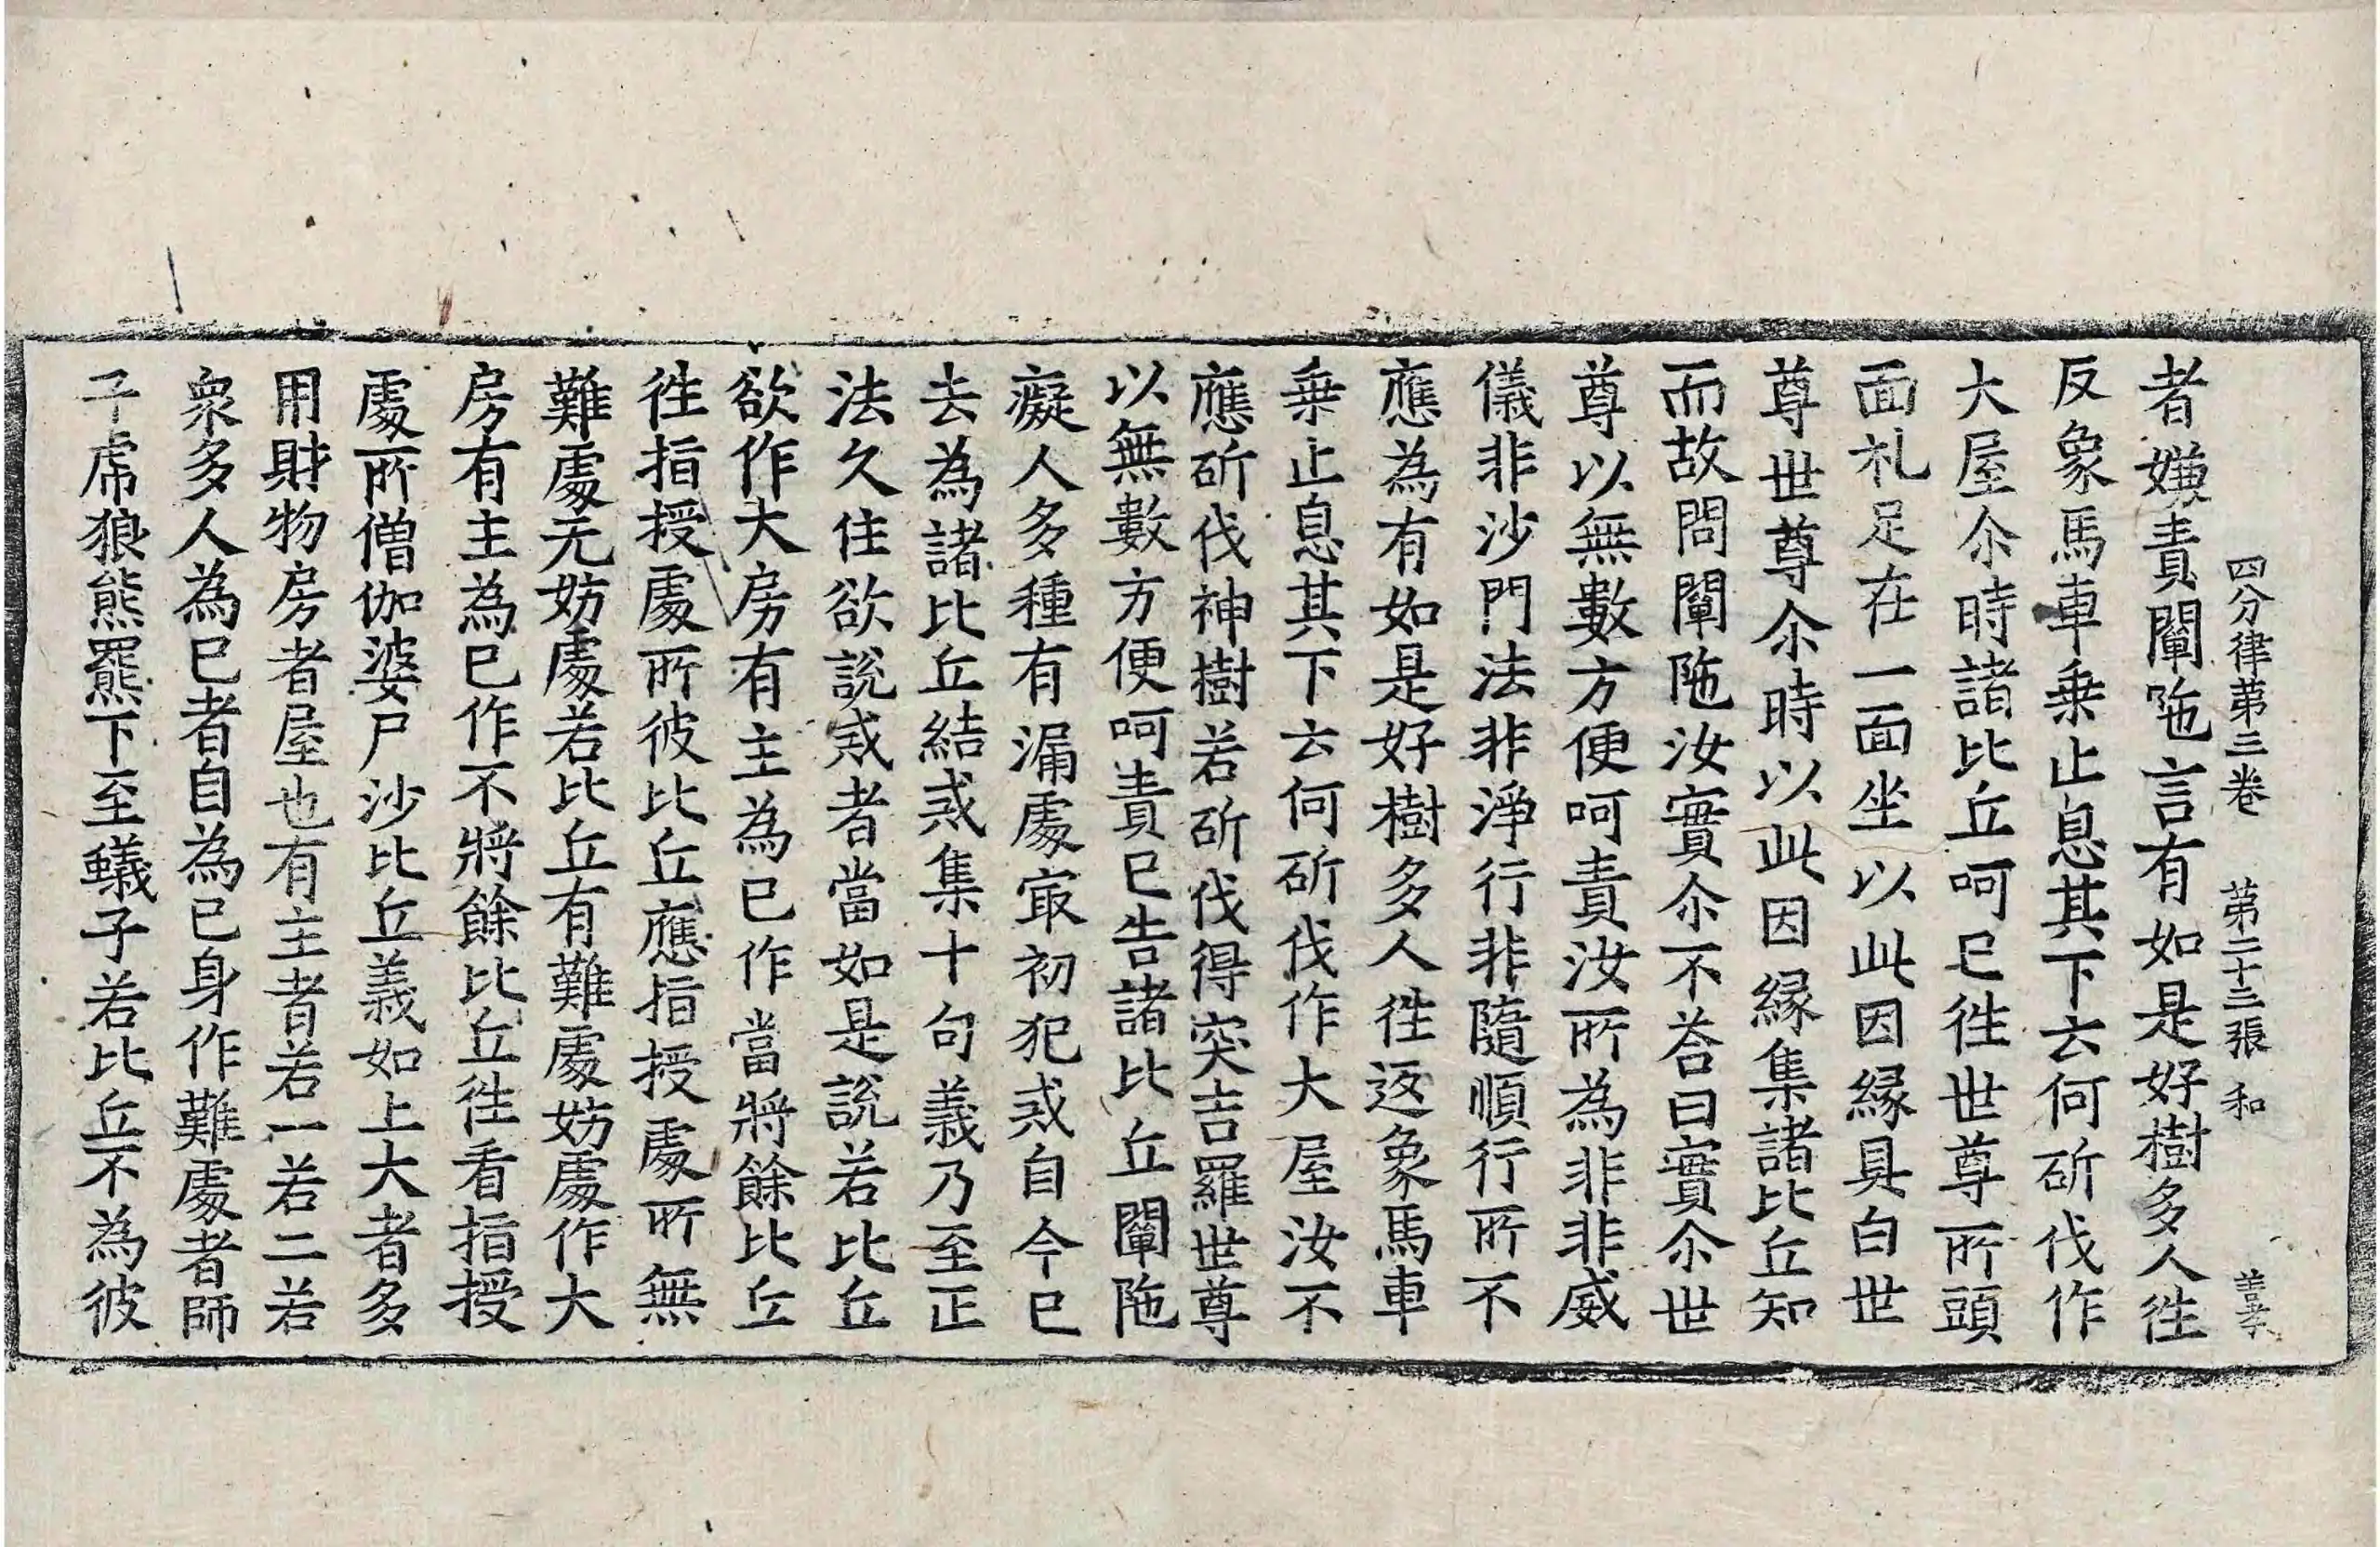 四分律苐三卷 苐二十三張 和
者嫌責闡陁言有如是好樹多人徃
反象馬車乗止息其下云何斫伐作
大屋尒時諸比丘呵已徃世尊所頭
面礼足在一面坐以此因縁具白世
尊世尊尒時以此因縁集諸比丘知
而故問闡陁汝實尒不荅曰實尒世
尊以無數方便呵責汝所為非非威
儀非沙門法非淨行非隨順行所不
應為有如是好樹多人徃返象馬車
乗止息其下云何斫伐作大屋汝不
應斫伐神樹若斫伐得突吉羅世尊
以無數方便呵責已告諸比丘闡陁
癡人多種有漏處冣初犯戒自今已
去為諸比丘結戒集十句義乃至正
法久住欲說戒者當如是說若比丘
欲作大房有主為已作當將餘比丘
徃指授處所彼比丘應指授處所無
難處无妨處若比丘有難處妨處作大
房有主為已作不將餘比丘徃看指授
處所僧伽婆尸沙比丘義如上大者多
用財物房者屋也有主者若一若二若
衆多人為已者自為已身作難處者師
子虎狼熊羆下至蟻子若比丘不為彼